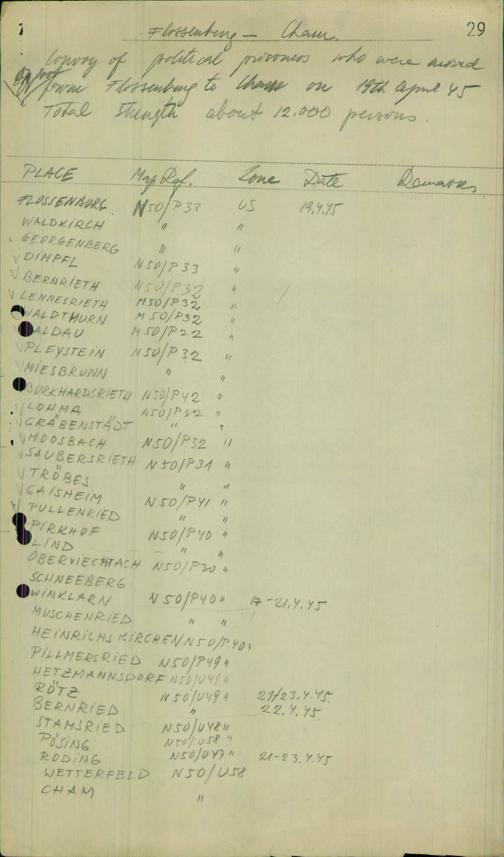 29
Flossenburg - Cham.
Convoy of political prisoners who were moved
from Flossenburg to Cham on 19th April 45
Total Strength about 12.000 persons.
PLACE Map Ref. Zone Date Remarks
FLOSSENBURG N50/P33 US 19.4.45
WALDKIRCH " "
GEORGENBERG " "
DIMPFL N50/P33 "
BERNRIETH N50/P32 "
LENNESRIETH M50/P32 "
WALDTHURN M50/P32 "
WALDAU M50/P22 "
PLEYSTEIN N50/P32 "
MIESBRUNN " "
BURKHARDSRIETH N50/P42 "
LOHMA N50/P32 "
GRÄBENSTÄDT " "
MOOSBACH N50/P32 "
SAUBERSRIETH N50/P31 "
TRÖBES " "
GAISHEIM N50/P41 "
PULLENRIED " "
PIRKHOF N50/P40 "
LIND " "
OBERVIECHTACH N50/P30 "
SCHNEEBERG
WINKLARN N50/P40 " 17-21.4.45
MUSCHENRIED " "
HEINRICHSKIRCHEN N50/P40 "
PILLMERSRIED N50/P49 "
HETZMANNSDORF N50/U49 "
RÖTZ N50/U49 " 21/23.4.45
BERNRIED " 22.4.45
STAMSRIED N50/U48 "
PÖSING N50/U58 "
RODING N50/U47 " 21-23.4.45
WETTERFELD N50/U58
CHAM "